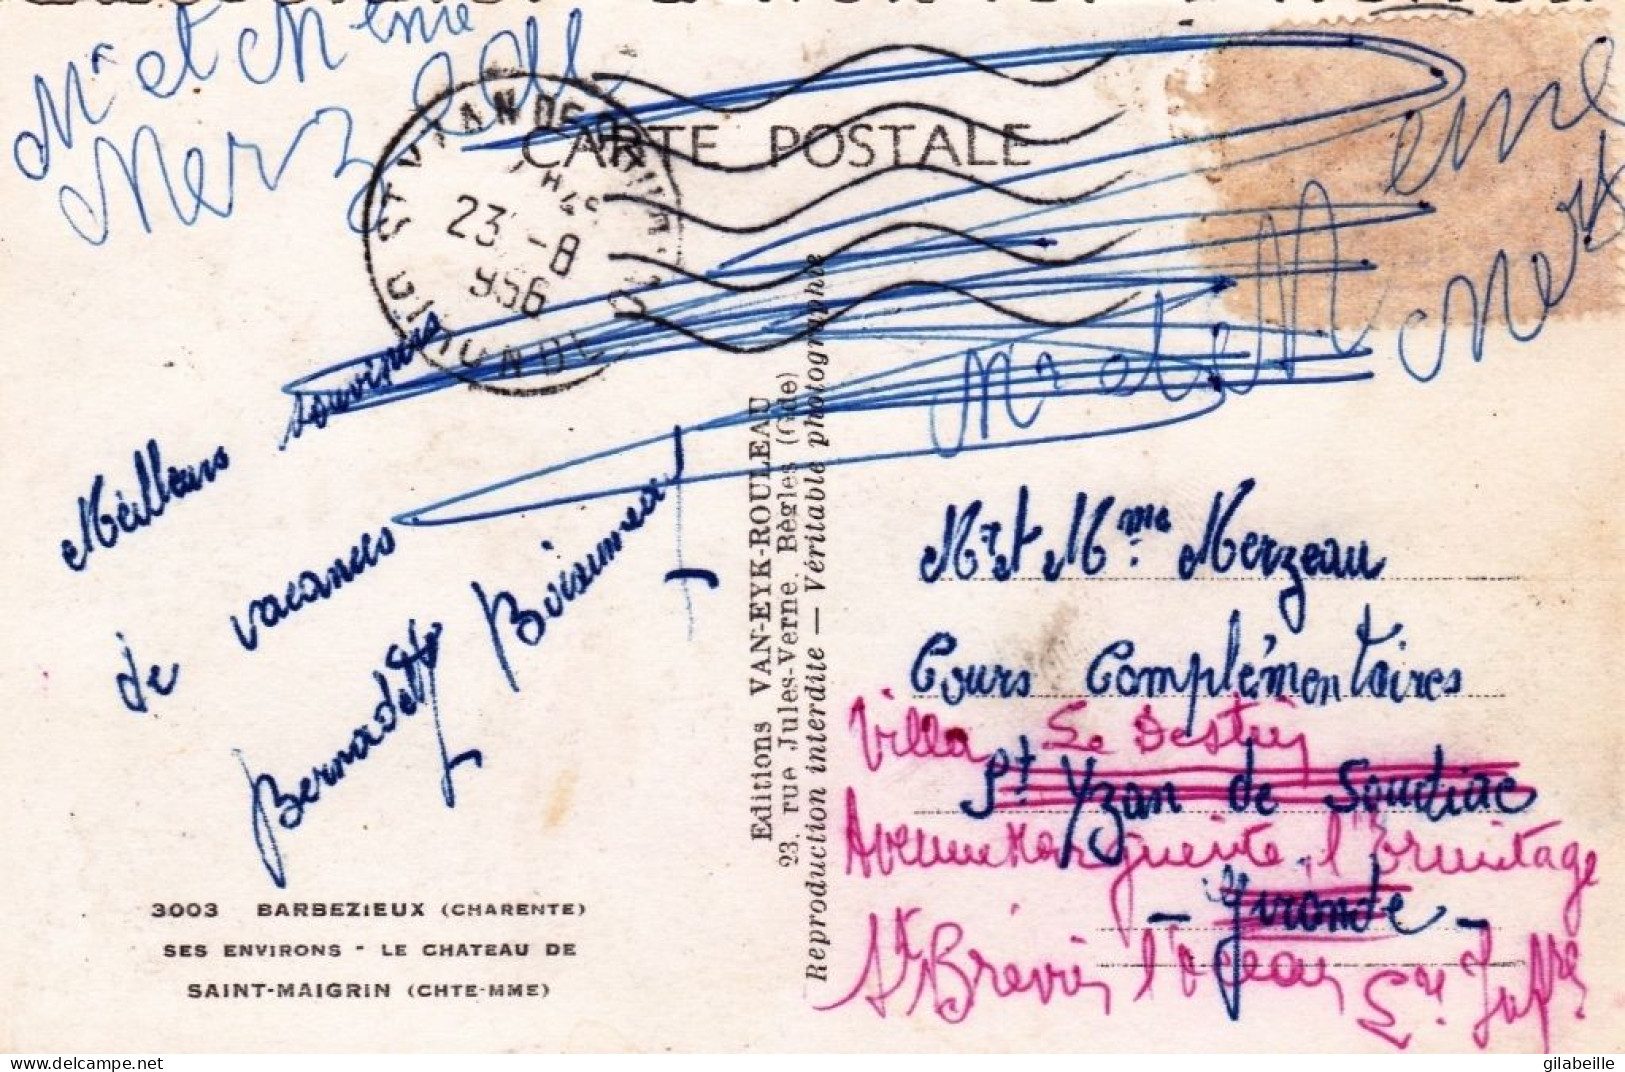 Mr et Mme
Merzeau
CARTE POSTALE
23 -8
956
GIRONDE
Mr et Mme
Merz
Meilleurs souvenirs
de vacances
Bernadette Boisumeau
Editions VAN-EYK-ROULEAU
23, rue Jules-Verne, Bègles (Gde)
Reproduction interdite — Véritable photographie
Mr et Mme Merzeau
Cours Complémentaires
Villa Le Destin
St Yzan de Soudiac
Avenue Marguerite l'Ermitage
- Gironde -
St Brévin l'océan Lre Infre
3003 BARBEZIEUX (CHARENTE)
SES ENVIRONS - LE CHATEAU DE
SAINT-MAIGRIN (CHTE-MME)
delcampe.net
gilabeille